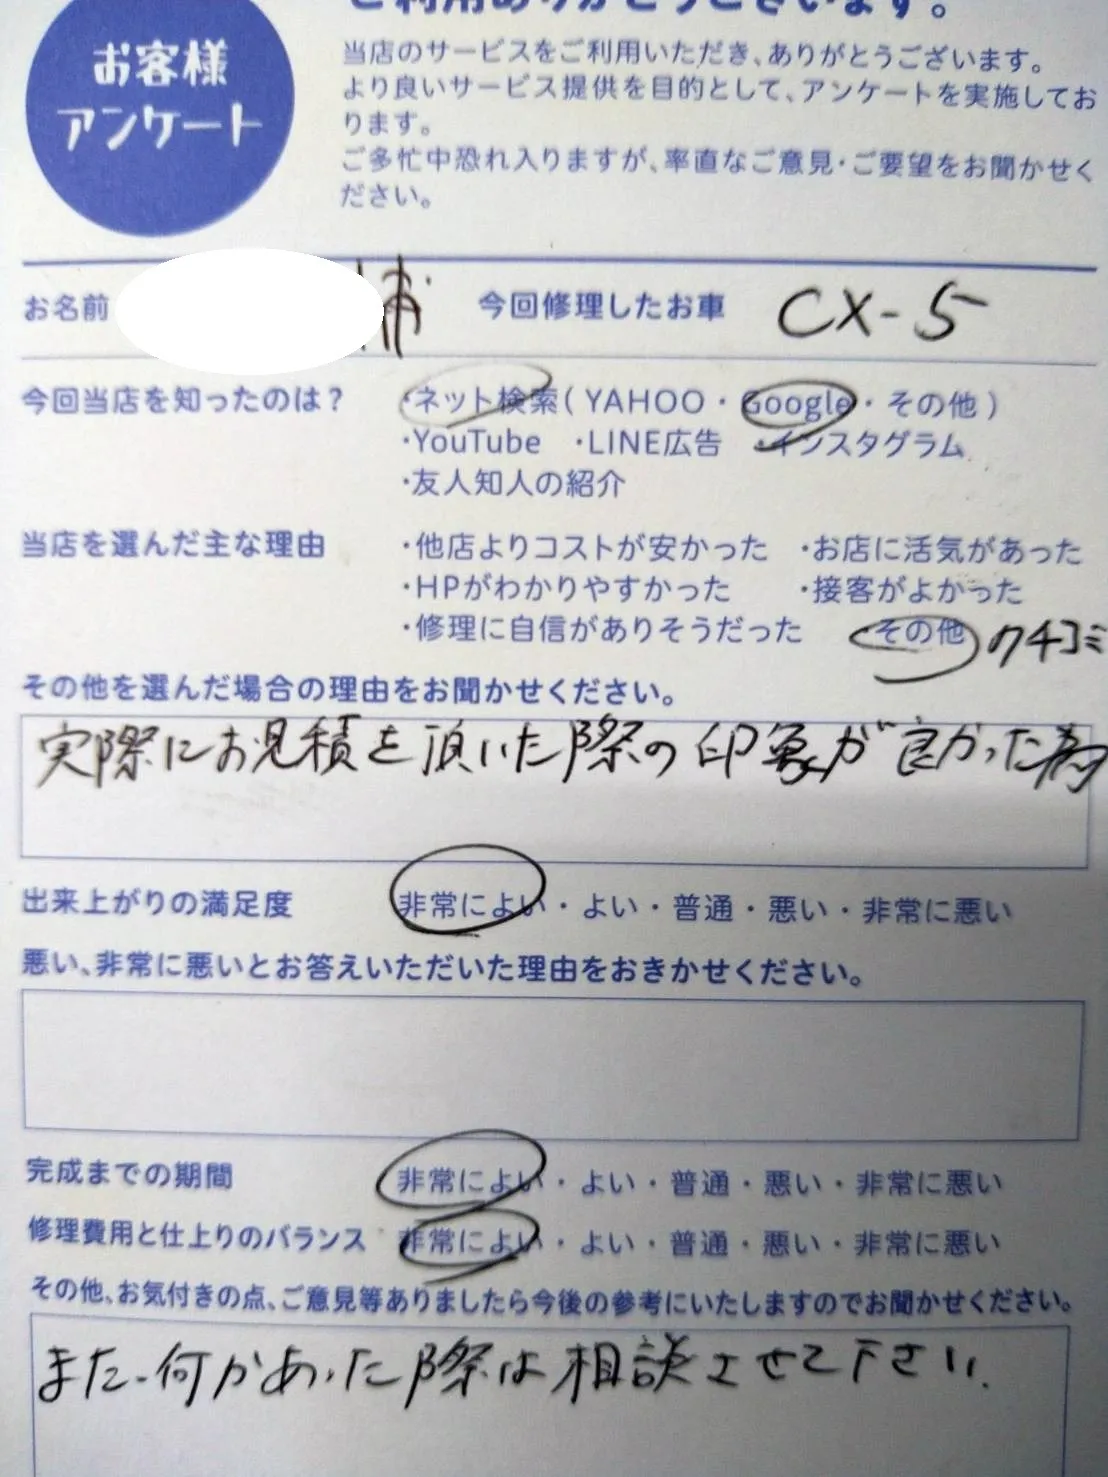 ご利用ありがとうございます。
お客様
アンケート
当店のサービスをご利用いただき、ありがとうございます。
より良いサービス提供を目的として、アンケートを実施してお
ります。
ご多忙中恐れ入りますが、率直なご意見・ご要望をお聞かせく
ださい。
お名前 輔 今回修理したお車 CX-5
今回当店を知ったのは? ・ネット検索(YAHOO・Google・その他)
・YouTube ・LINE広告 ・インスタグラム
・友人知人の紹介
当店を選んだ主な理由 ・他店よりコストが安かった ・お店に活気があった
・HPがわかりやすかった ・接客がよかった
・修理に自信がありそうだった ・その他 クチコミ
その他を選んだ場合の理由をお聞かせください。
実際にお見積を頂いた際の印象が良かった為
出来上がりの満足度 非常によい・よい・普通・悪い・非常に悪い
悪い、非常に悪いとお答えいただいた理由をおきかせください。
完成までの期間 非常によい・よい・普通・悪い・非常に悪い
修理費用と仕上りのバランス 非常によい・よい・普通・悪い・非常に悪い
その他、お気付きの点、ご意見等ありましたら今後の参考にいたしますのでお聞かせください。
また、何かあった際は相談させて下さい。